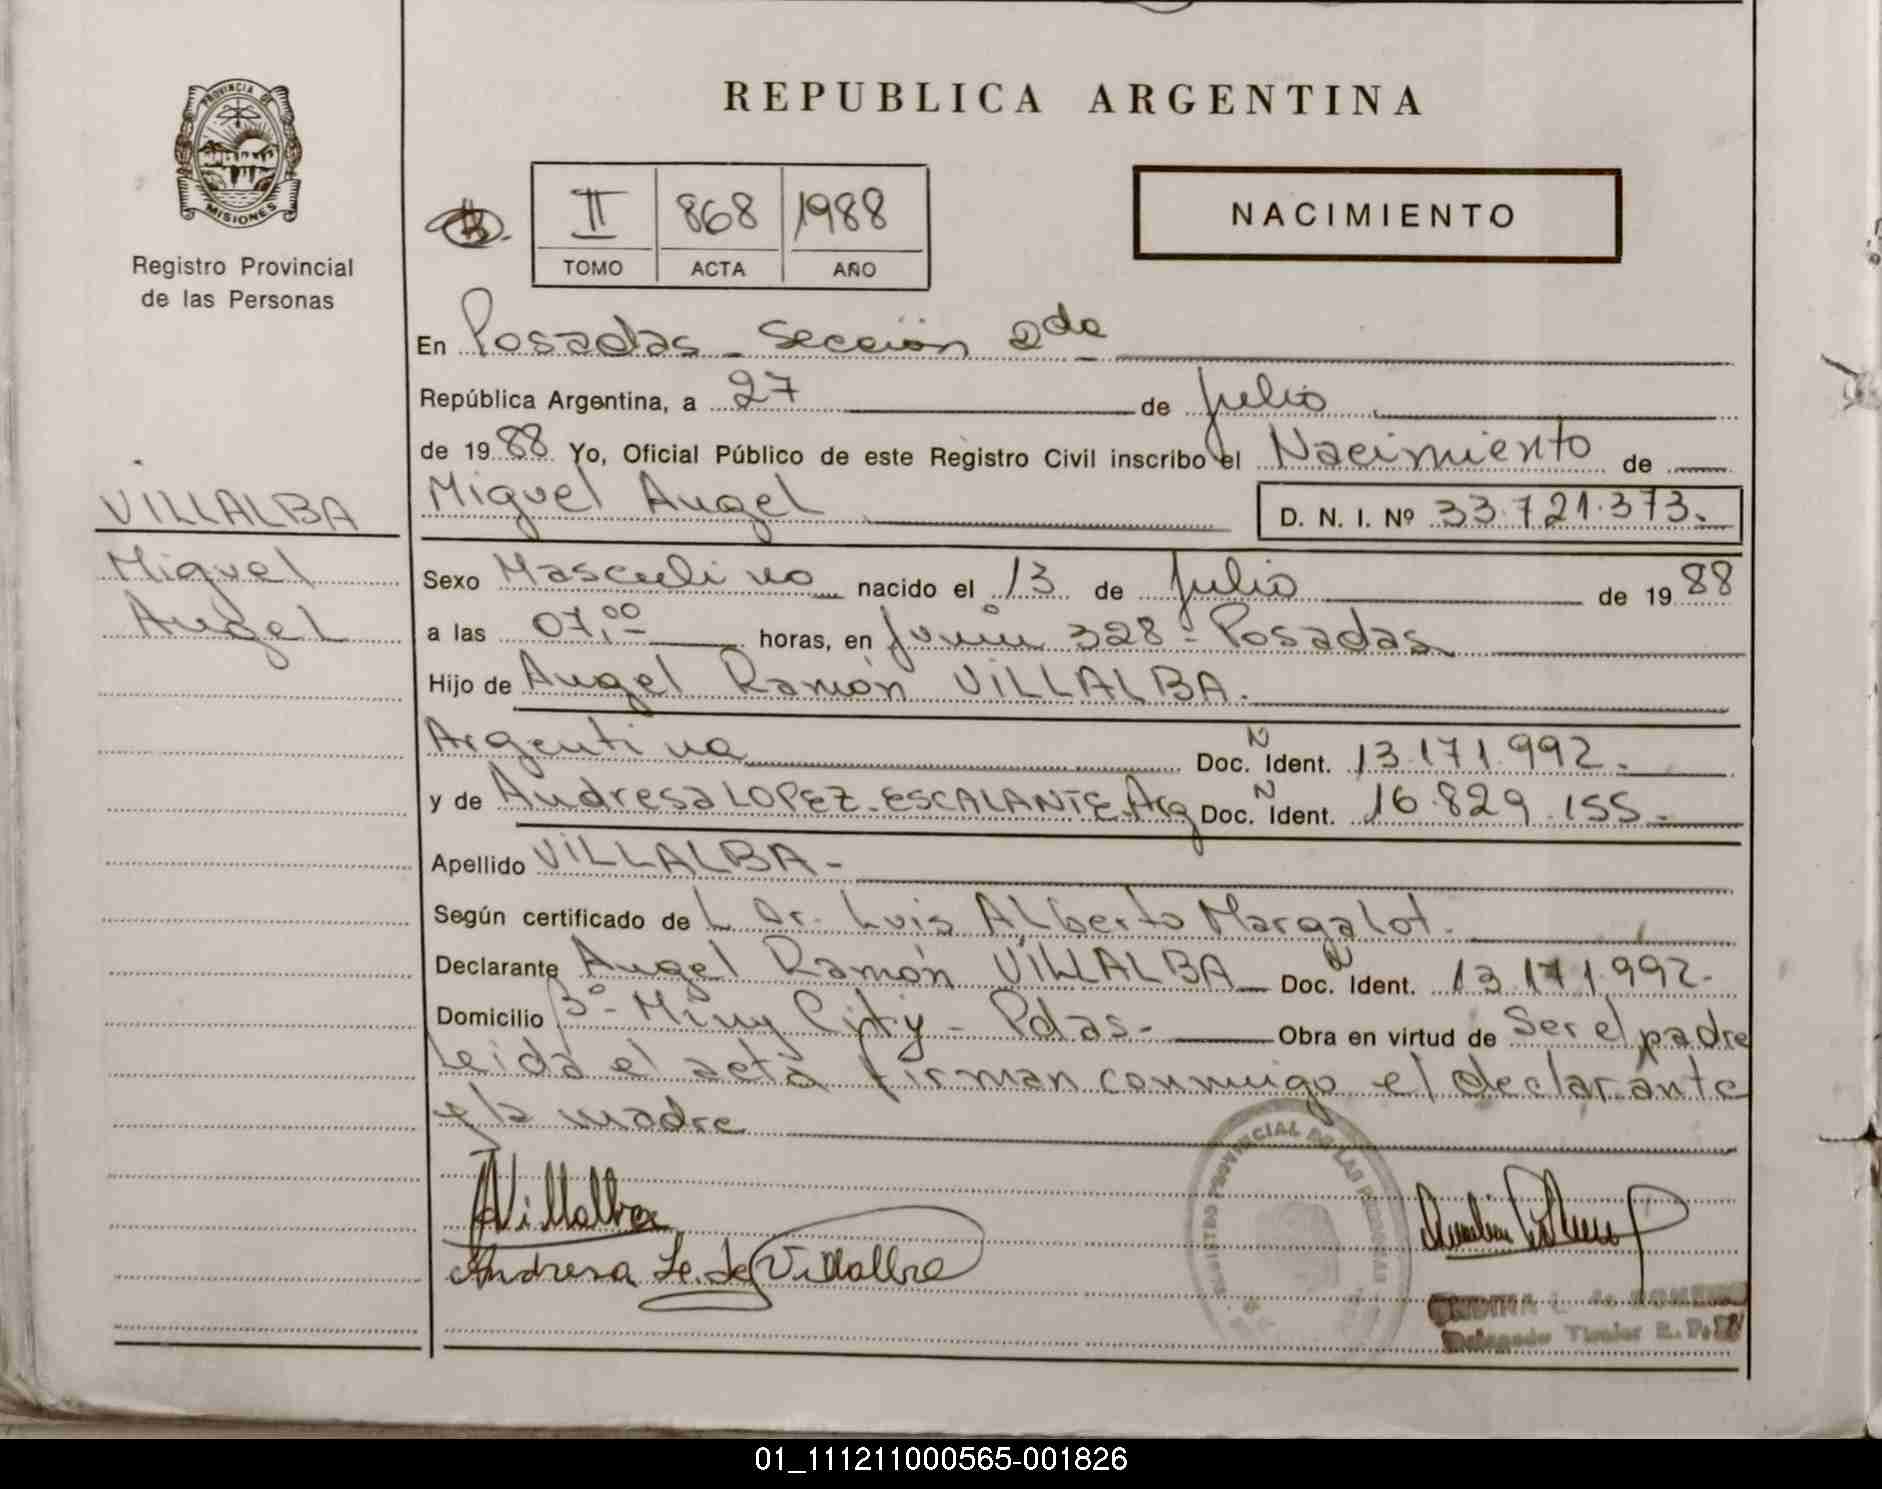 REPUBLICA ARGENTINA
PROVINCIA DE
MISIONES
Registro Provincial
de las Personas
II 868 1988
TOMO ACTA AÑO
NACIMIENTO
En Posadas - Sección 2da
República Argentina, a 27 de Julio
de 1988 Yo, Oficial Público de este Registro Civil inscribo el Nacimiento de
Miguel Angel D. N. I. Nº 33.721.373.
VILLALBA
Miguel
Angel
Sexo Masculino nacido el 13 de Julio de 1988
a las 07,00 horas, en Junín 328 - Posadas
Hijo de Angel Ramón VILLALBA.
Argentina Doc. N Ident. 13.171.992.
y de Andresa LOPEZ ESCALANTE. Arg Doc. N Ident. 16.829.155.
Apellido VILLALBA -
Según certificado de L Dr. Luis Alberto Margalot.
Declarante Angel Ramón VILLALBA Doc. N Ident. 13.171.992.
Domicilio Bº Miny City - Pdas. Obra en virtud de Ser el padre
Leida el acta firman conmigo el declarante
y la madre
AVillalba
Andresa Le. de Villalba
REGISTRO PROVINCIAL DE LAS PERSONAS
L. de ROMERO
Delegado Titular R. P.
01_111211000565-001826